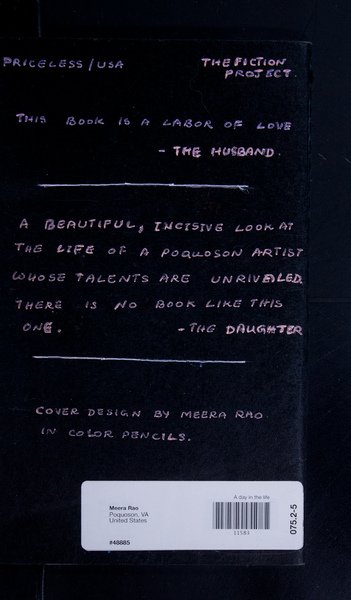 PRICELESS/USA
THE FICTION
PROJECT.
THIS BOOK IS A LABOR OF LOVE
- THE HUSBAND.
A BEAUTIFUL, INCISIVE LOOK AT
THE LIFE OF A POQUOSON ARTIST
WHOSE TALENTS ARE UNRIVALED
THERE IS NO BOOK LIKE THIS
ONE. - THE DAUGHTER
COVER DESIGN BY MEERA RAO
IN COLOR PENCILS.
A day in the life
Meera Rao
Poquoson, VA
United States
11583
#48885
075.2-5